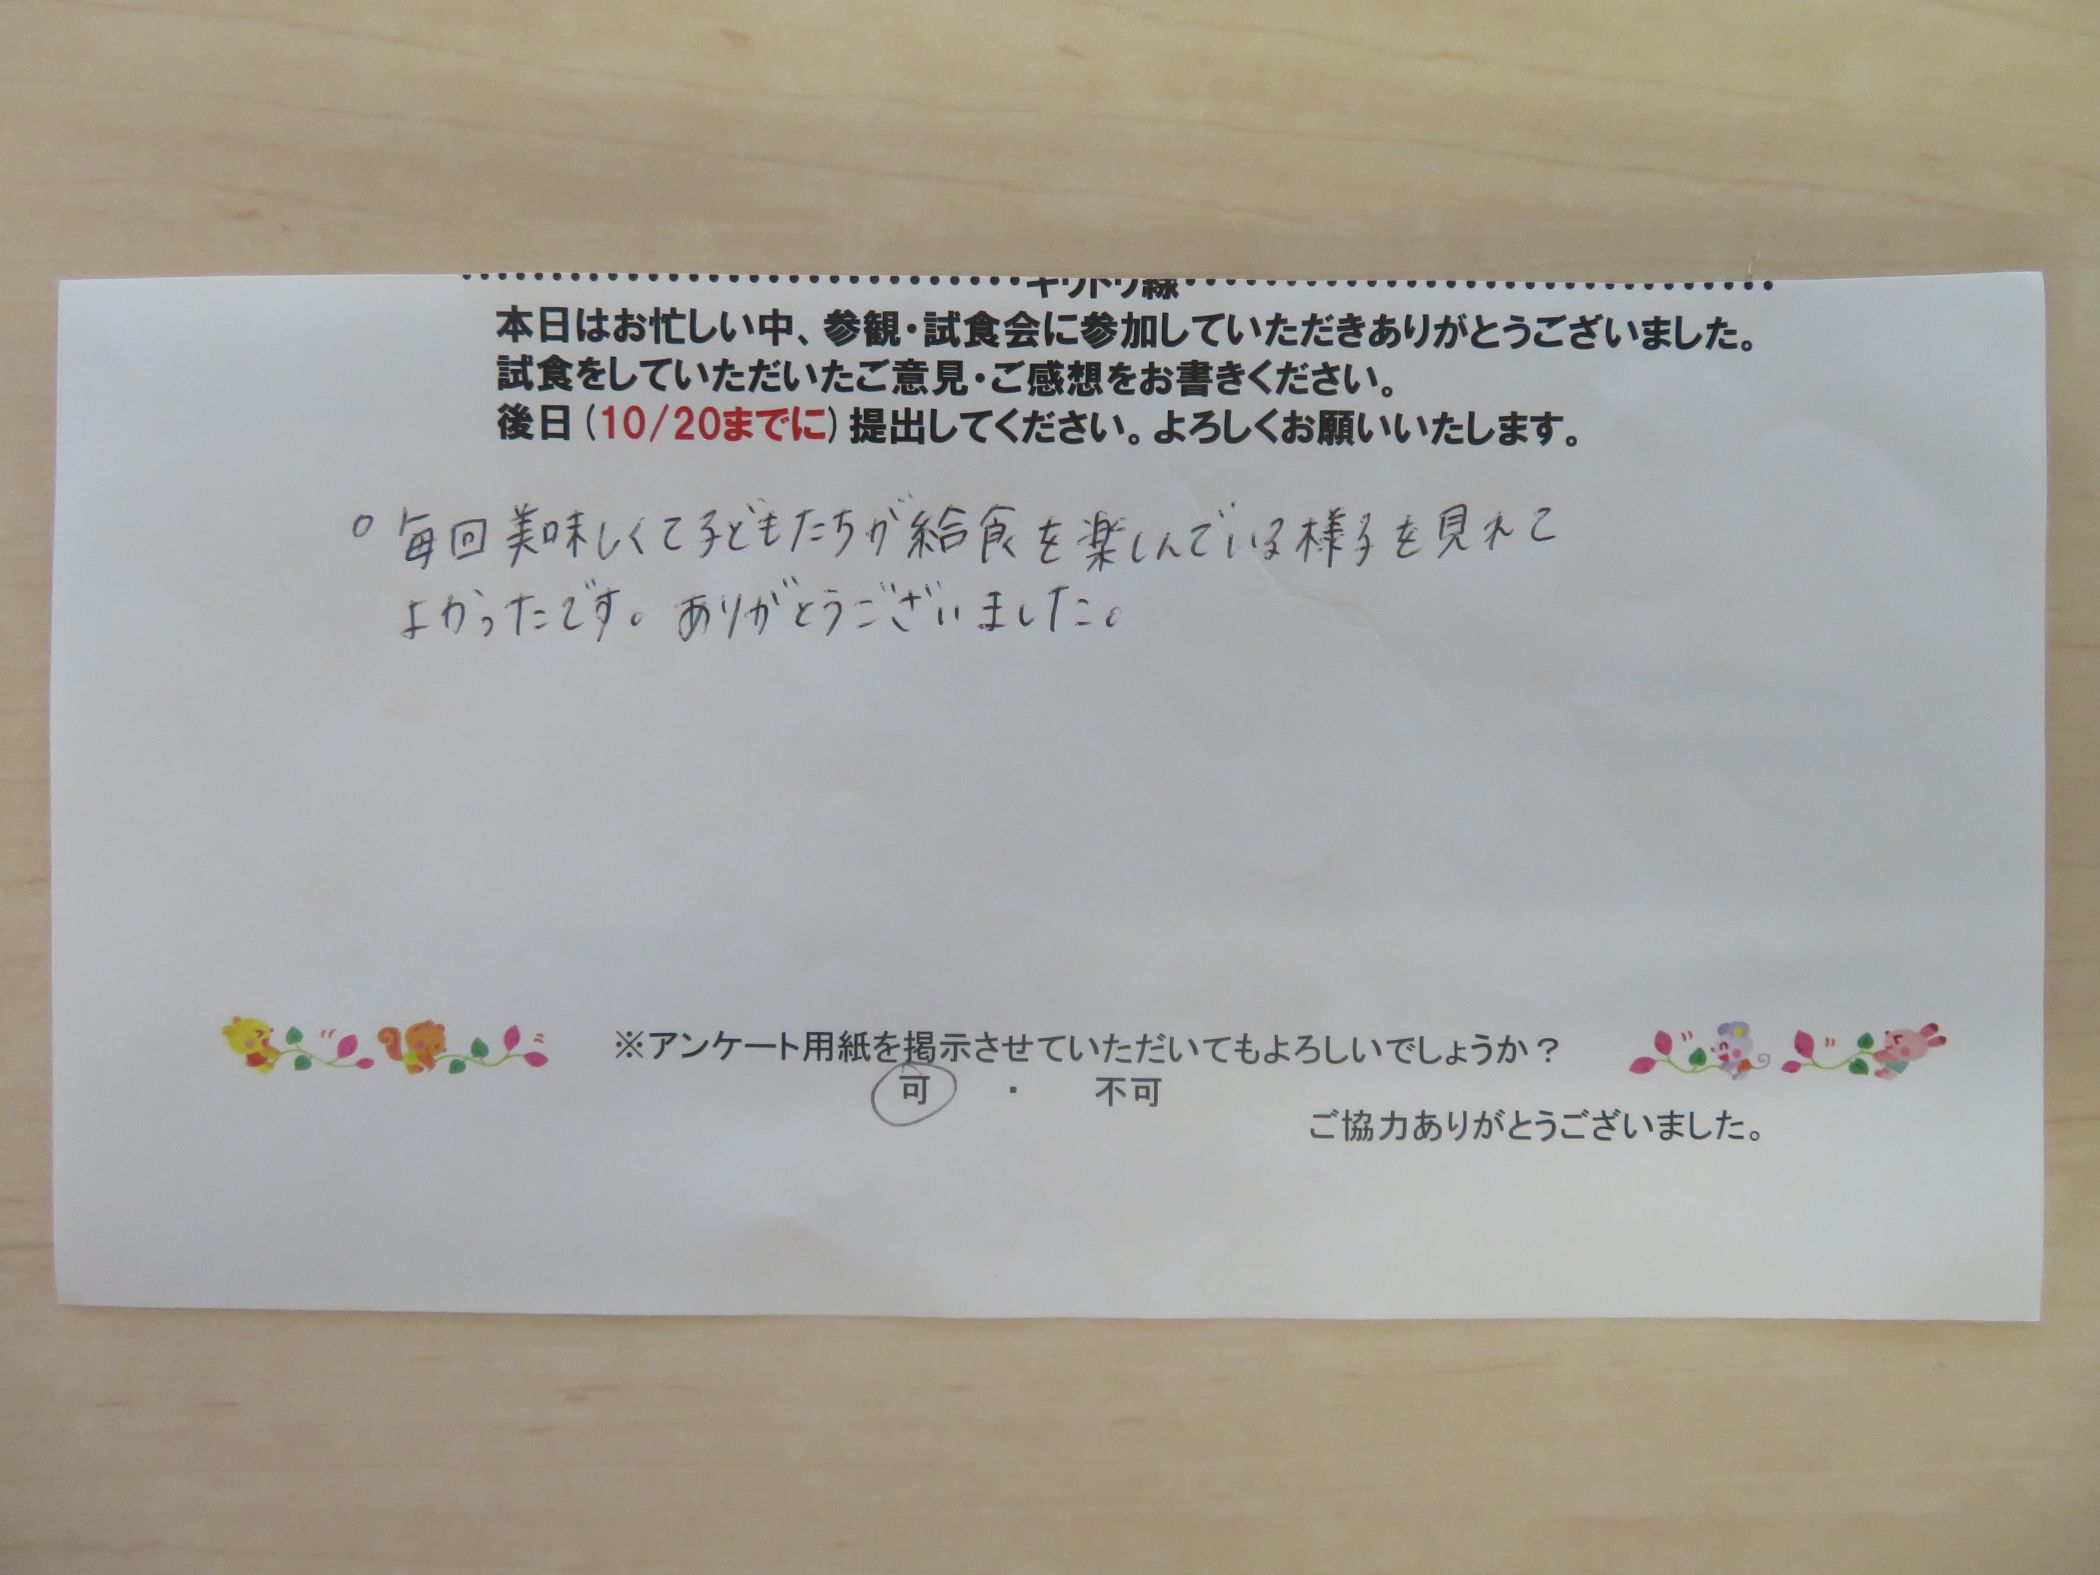 キリトリ線
本日はお忙しい中、参観・試食会に参加していただきありがとうございました。
試食をしていただいたご意見・ご感想をお書きください。
後日(10/20までに)提出してください。よろしくお願いいたします。
○ 毎回美味しくて子どもたちが給食を楽しんでいる様子を見れて
よかったです。ありがとうございました。
※アンケート用紙を掲示させていただいてもよろしいでしょうか？
可 ・ 不可
ご協力ありがとうございました。